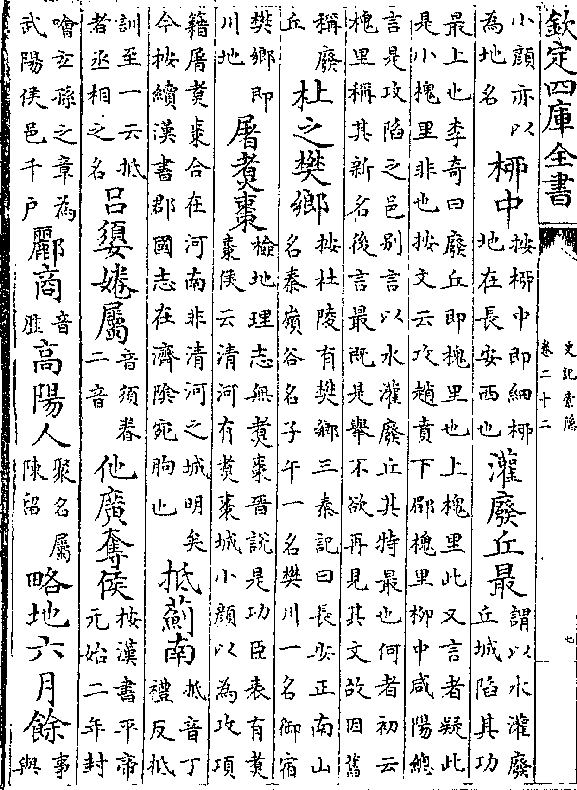 欽定四庫全書
史記索隱
卷二十二
七
小顏亦以
為地名
柳中
按柳中即細柳
地在長安西也
灌廢丘最
謂以水灌廢
丘城陷其功
最上也李奇曰廢丘即槐里也上槐里此又言者疑此
是小槐里非也按文云攻趙賁下郿槐里柳中咸陽總
言是攻陷之邑別言以水灌廢丘其特最也何者初云
槐里稱其新名後言最既是舉不欲再見其文故因舊
稱廢
丘
杜之樊鄉
按杜陵有樊鄉三秦記曰長安正南山
名秦嶺谷名子午一名樊川一名御宿
樊鄉即
川地
屠煑棗
檢地理志無煑棗晉說是功臣表有煑
棗侯云清河有煑棗城小顏以為攻項
籍屠煑棗合在河南非清河之城明矣
今按續漢書郡國志在濟陰宛朐也
抵薊南
抵音丁
禮反抵
訓至一云抵
者丞相之名
呂嬃婘屬
音須眷
二音
他廣奪侯
按漢書平帝
元始二年封
噲玄孫之章為
武陽侯邑千戶
酈商
音
高陽人
聚名屬
陳留
略地六月餘
事
與